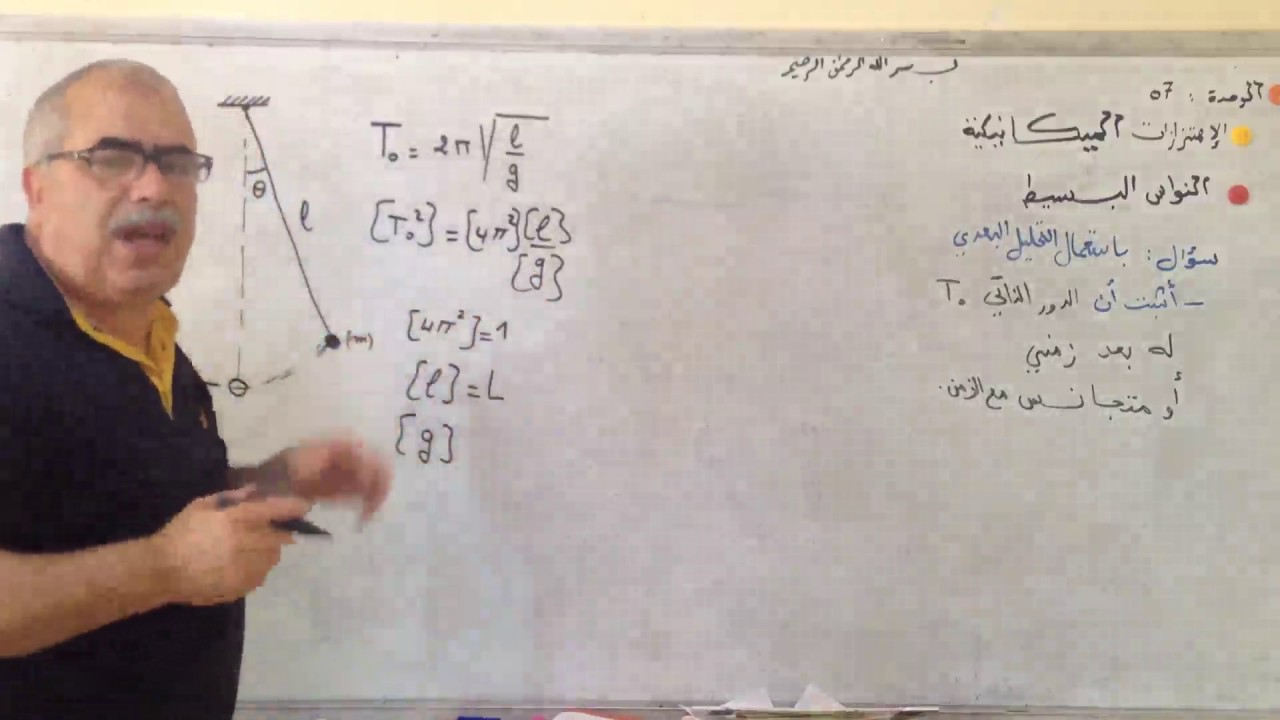 بسم الله الرحمن الرحيم
الوحدة : 07
الإهتزازات الميكانيكية
النواس البسيط
سؤال : باستعمال التحليل البعدي
- أثبت أن الدور الذاتي T₀
له بعد زمني
أو متجانس مع الزمن.
T₀ = 2π √(l/g)
[T₀²] = [4π²] [l]/[g]
[4π²] = 1
[l] = L
[g]
θ
l
(m)